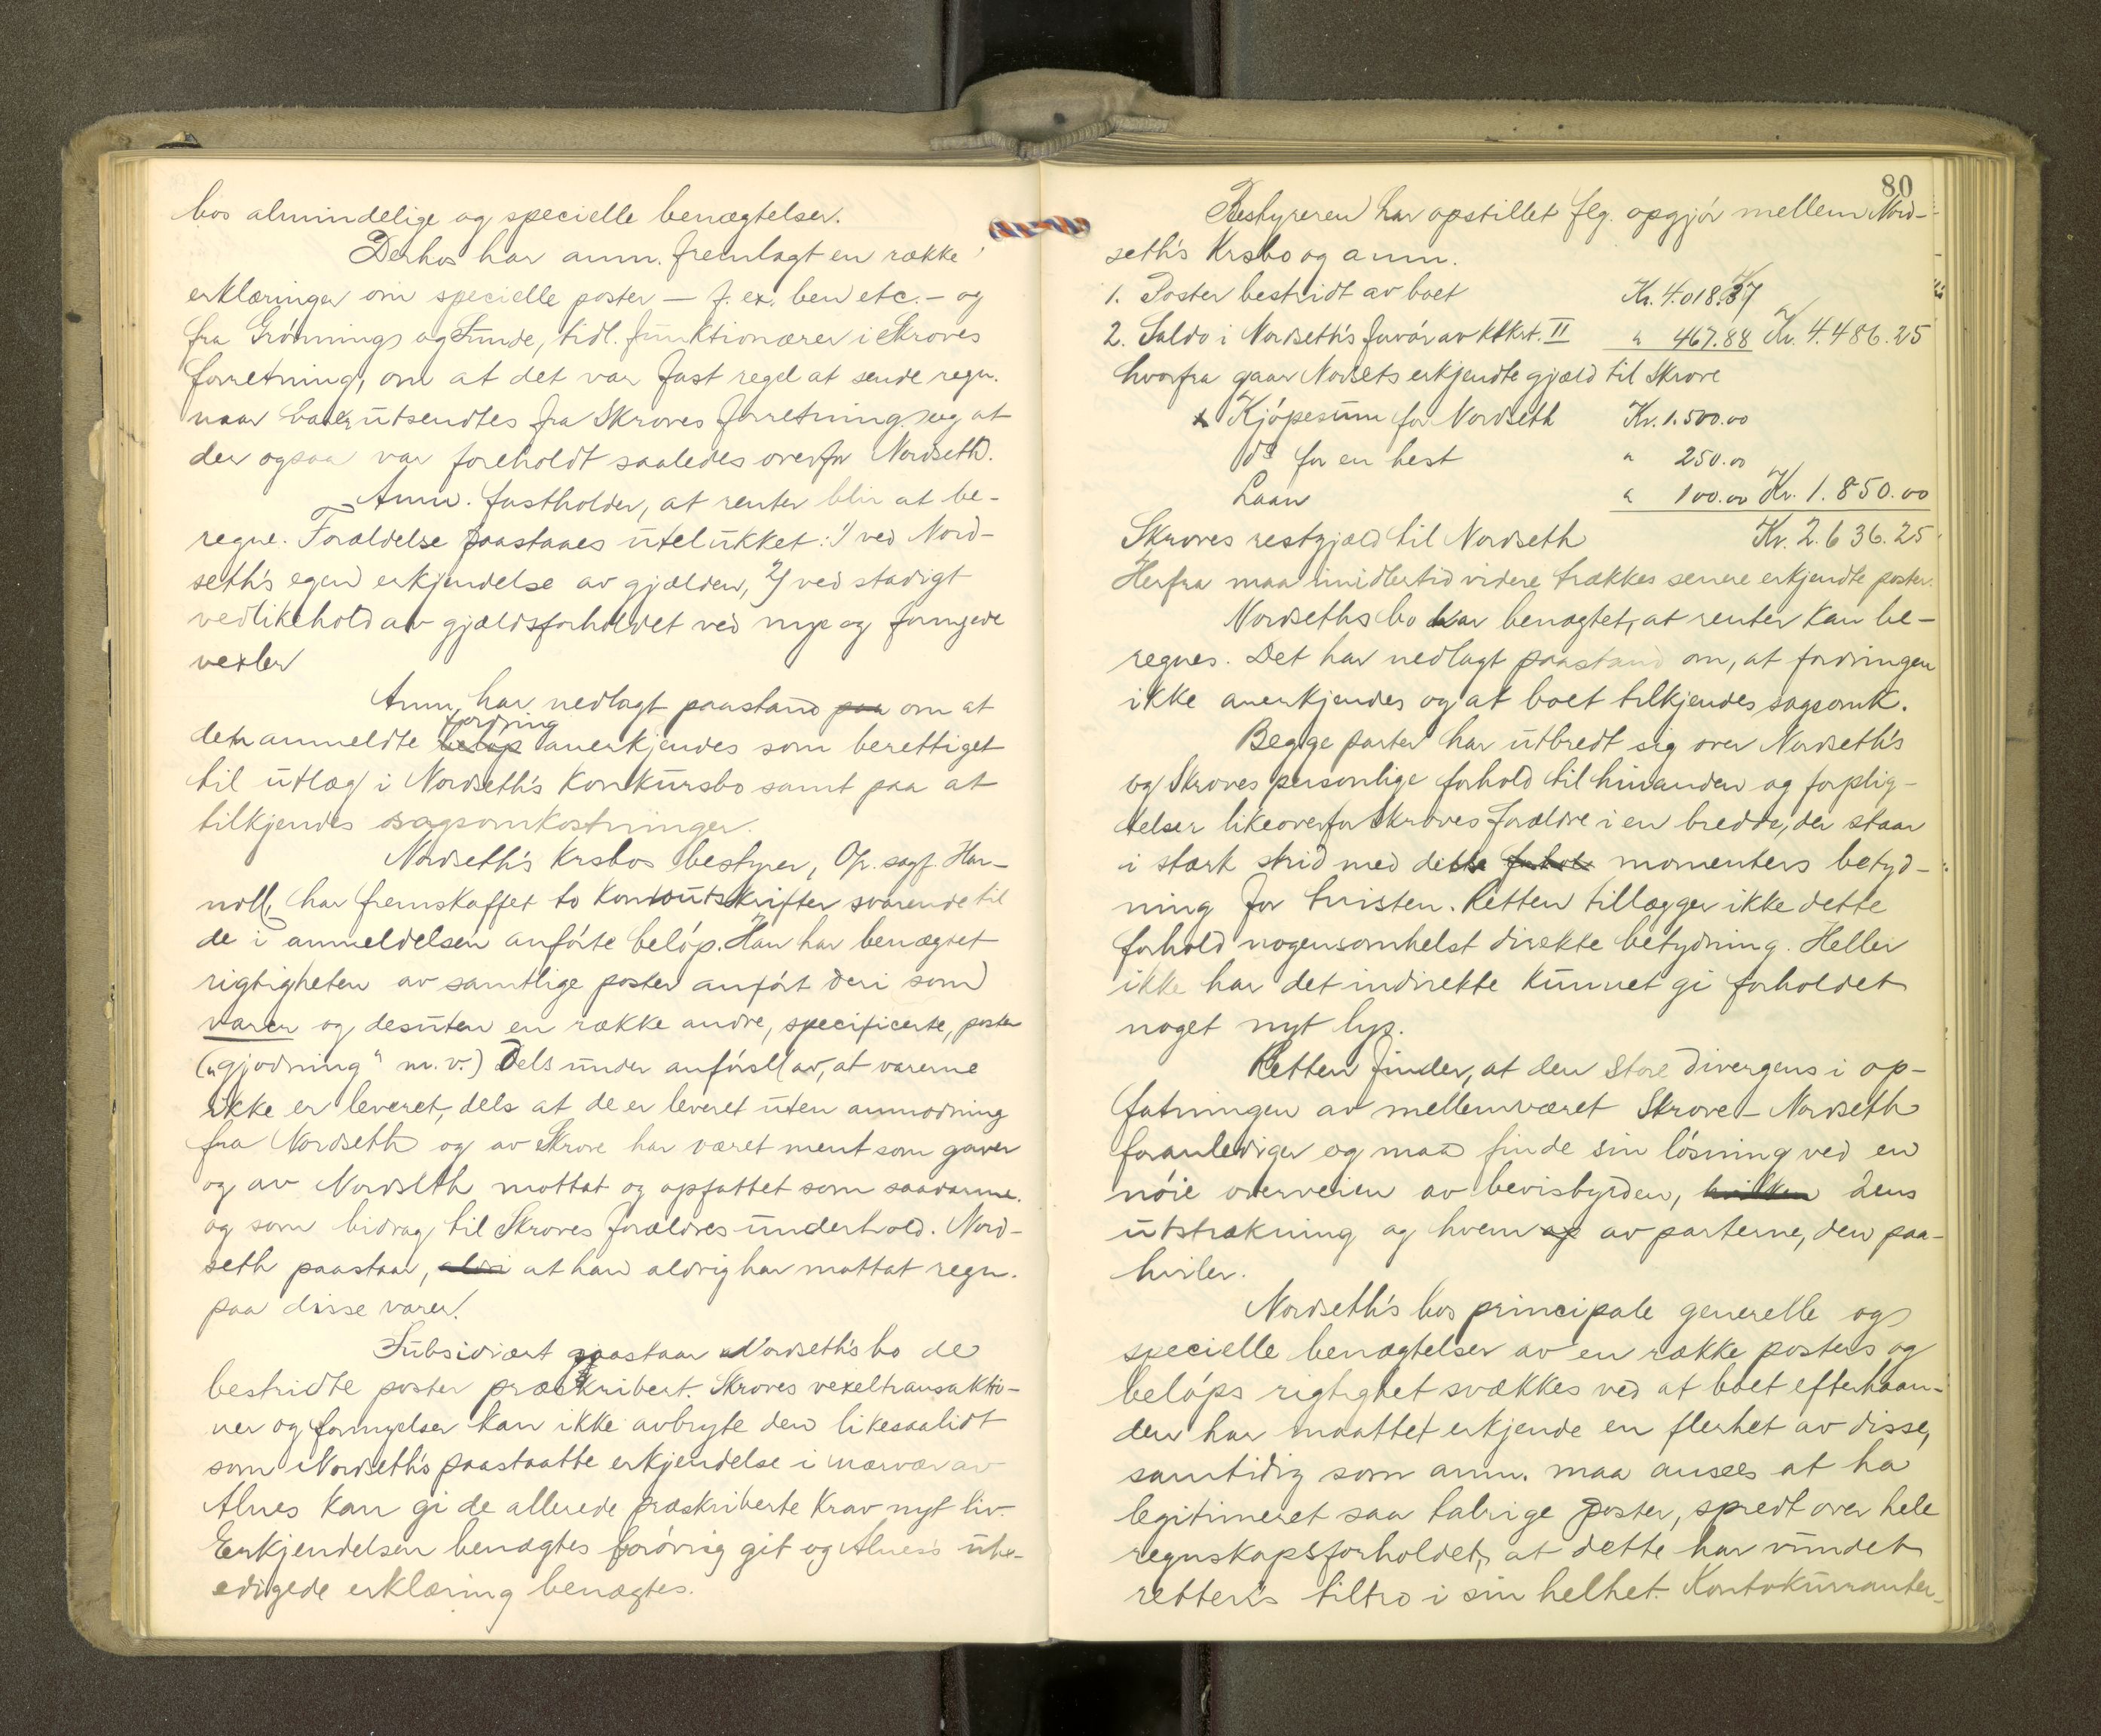 bos almindelige og specielle benægtelser.
Derhos har anm. fremlagt en række
erklæringer om specielle poster — f. ex. ben etc. — og
fra Grönnings og Sunde, tidl. funktionærer i Skroves
forretning, om at det var fast regel at sende regn.
naar varer utsendtes fra Skroves forretning og at
der ogsaa var foreholdt saaledes overfor Nordseth.
Anm. fastholder, at renter blir at be-
regne. Forældelse paastaaes utelukket: 1) ved Nord-
seth's egen erkjendelse av gjælden, 2) ved stadigt
vedlikehold av gjældsforholdet ved nye og fornyede
vexler
Anm. har nedlagt paastand paa om at
fordring
den anmeldte beløp anerkjendes som berettiget
til utlæg i Nordseth's Konkursbo samt paa at
tilkjendes sagsomkostninger.
Nordseth's Krsbos bestyrer, Op. sagf. Har-
noll, har fremskaffet to Kontoutskrifter svarende til
de i anmeldelsen anførte beløp. Han har benægtet
rigtigheten av samtlige poster anført deri som
varer og desuten en række andre, specificerte, poster
("gjødning" m. v.) Dels under anførsel av, at varerne
ikke er leveret, dels at de er leveret uten anmodning
fra Nordseth og av Skrove har været ment som gaver
og av Nordseth mottat og opfattet som saadanne.
og som bidrag til Skroves forældres underhold. Nord-
seth paastaar, aldri at han aldrig har mottat regn.
paa disse varer.
Subsidiært paastaar Nordseth's bo de
bestridte poster præskribert. Skroves vexeltransaktio-
ner og fornyelser kan ikke avbryte den likesaalidt
som Nordseth's paastaatte erkjendelse i nærvær av
Alnes kan gi de allerede præskriberte krav nyt liv.
Erkjendelsen benægtes forøvrig git og Alnes's ube-
edigede erklæring benægtes.
80
Bestyreren har opstillet flg. opgjör mellem Nord-
seth's Krsbo og anm.
1. Poster bestridt av boet Kr. 4.018.37
2. Saldo i Nordseth's favör av ktkrt. II " 467.88 Kr. 4.486.25
hvorfra gaar Nordsets erkjendte gjæld til Skrove
x Kjøpesum for Nordseth Kr. 1.500.00
do for en hest " 250.00
Laan " 100.00 Kr. 1.850.00
Skroves restgjæld til Nordseth Kr. 2.636.25
Herfra maa imidlertid videre trækkes senere erkjendte poster.
Nordseths bo har benægtet, at renter kan be-
regnes. Det har nedlagt paastand om, at fordringen
ikke anerkjendes og at boet tilkjendes sagsomk.
Begge parter har utbredt sig over Nordseth's
og Skroves personlige forhold til hinanden og forplig-
telser likeoverfor Skroves forældre i en bredde, der staar
i stærk strid med dette forhol momenters betyd-
ning for tvisten. Retten tillægger ikke dette
forhold nogensomhelst direkte betydning. Heller
ikke har det indirekte kunnet gi forholdet
noget nyt lys.
Retten finder, at den store divergens i op-
fatningen av mellemværet Skrove – Nordseth
foranlediger og maa finde sin løsning ved en
nøie overveien av bevisbyrden, hvilken dens
utstrækning og hvem op av parterne, den paa-
hviler.
Nordseth's bos principale generelle og
specielle benægtelser av en række posters og
beløps rigtighet svækkes ved at boet efterhaan-
den har maattet erkjende en flerhet av disse,
samtidig som anm. maa ansees at ha
legitimeret saa talrige poster, spredt over hele
regnskapsforholdet, at dette har vundet
rettens tiltro i sin helhet. Kontokuranter-